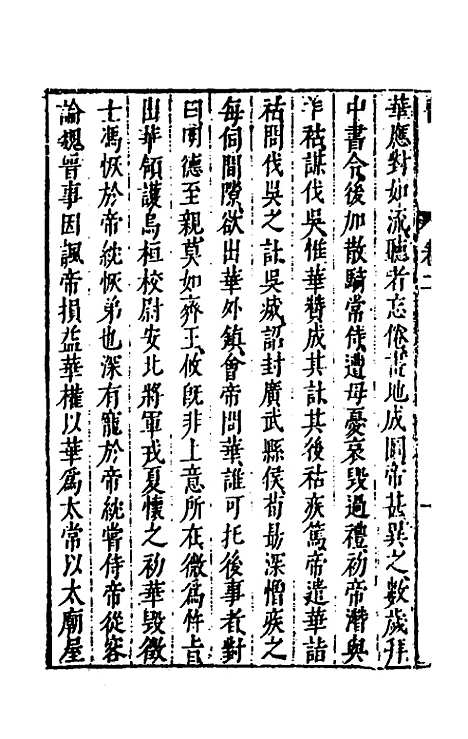 華應對如流聽者忘倦畫地成圖帝甚異之數歲拜
中書令後加散騎常侍遭母憂哀毀過禮初帝潛與
羊祜謀伐吳惟華贊成其計其後祜疾篤帝遣華詣
祜問伐吳之計吳滅詔封廣武縣侯荀勗深憎疾之
每伺間隙欲出華外鎮會帝問華誰可托後事者對
曰明德至親莫如齊王攸旣非上意所在微爲忤旨
出華領護烏桓校尉安北將軍戎夏懷之初華毀徵
士馮恢於帝紞恢弟也深有寵於帝紞嘗侍帝從容
論魏晉事因諷帝損益華權以華爲太常以太廟屋
卷二